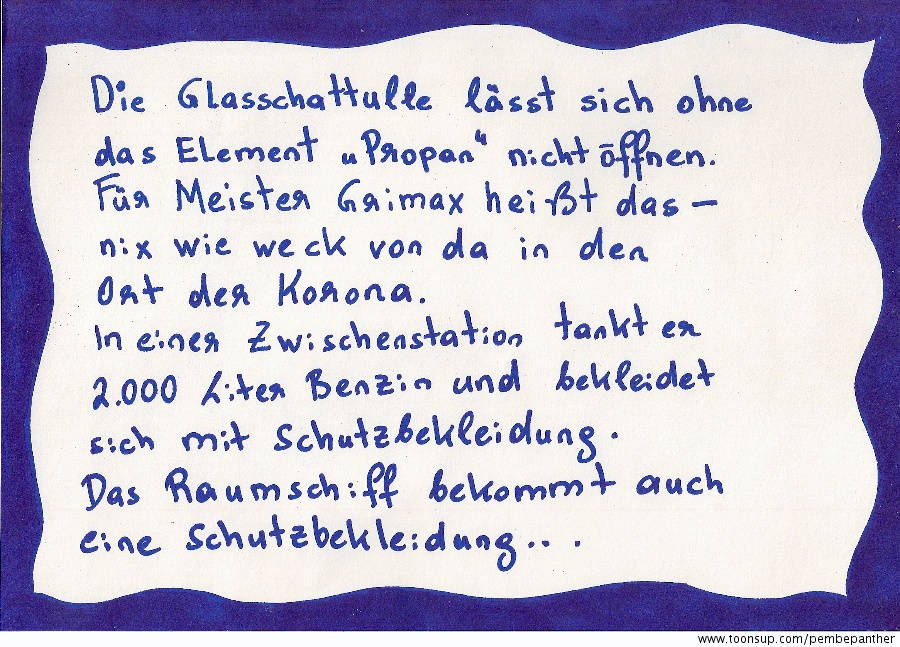 Die Glasschattulle lässt sich ohne
das Element „Propan“ nicht öffnen.
Für Meister Grimax heißt das –
nix wie weck von da in den
Ort der Korona.
In einer Zwischenstation tankt er
2.000 Liter Benzin und bekleidet
sich mit Schutzbekleidung.
Das Raumschiff bekommt auch
eine Schutzbekleidung...
www.toonsup.com/pembepanther